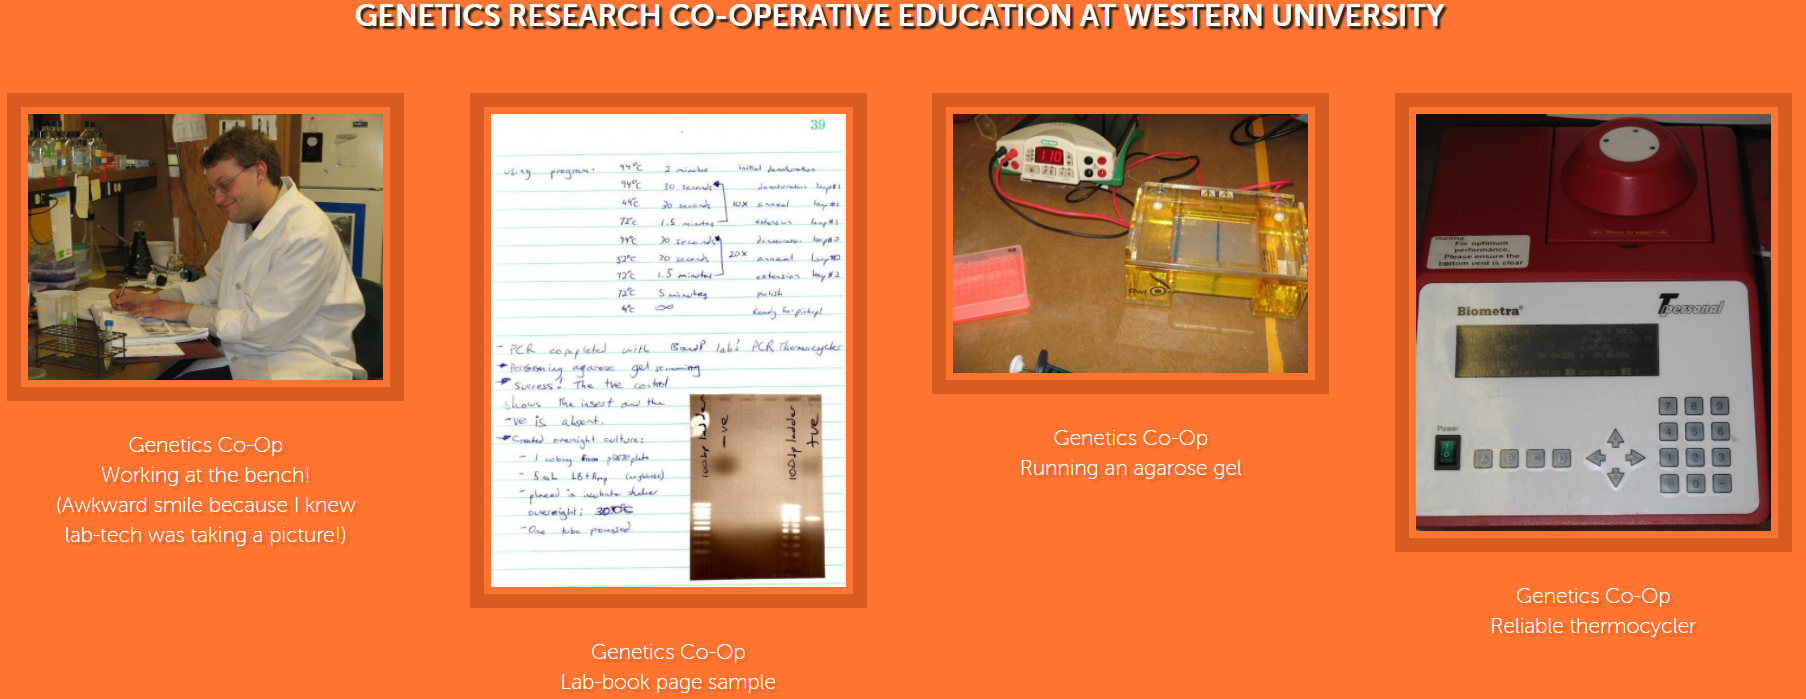 GENETICS RESEARCH CO-OPERATIVE EDUCATION AT WESTERN UNIVERSITY
Genetics Co-Op
Working at the bench!
(Awkward smile because I knew
lab-tech was taking a picture!)
39
using program: 94°C 2 minutes initial denaturation
94°C 30 seconds denaturation loop#1
44°C 30 seconds 10X anneal loop#1
72°C 1.5 minutes extension loop#1
94°C 30 seconds denaturation loop#2
52°C 30 seconds 20X anneal loop#2
72°C 1.5 minutes extension loop#2
72°C 5 minutes polish
4°C ∞ Ready for pickup!
- PCR completed with lab's PCR Thermocycler
Performing agarose gel
Success! The +ve control
shows the insert and the
-ve is absent.
Created overnight culture:
- 1 colony from plate
- 5mL LB+Amp
- placed in incubator shaker
overnight; 30°C
- One tube processed
100bp ladder
-ve
100bp ladder
+ve
Genetics Co-Op
Lab-book page sample
110
Owl
Genetics Co-Op
Running an agarose gel
For optimum
performance,
Please ensure the
bottom vent is clear
Biometra®
Tpersonal
Power
7 8 9
4 5 6
1 2 3
0
Genetics Co-Op
Reliable thermocycler